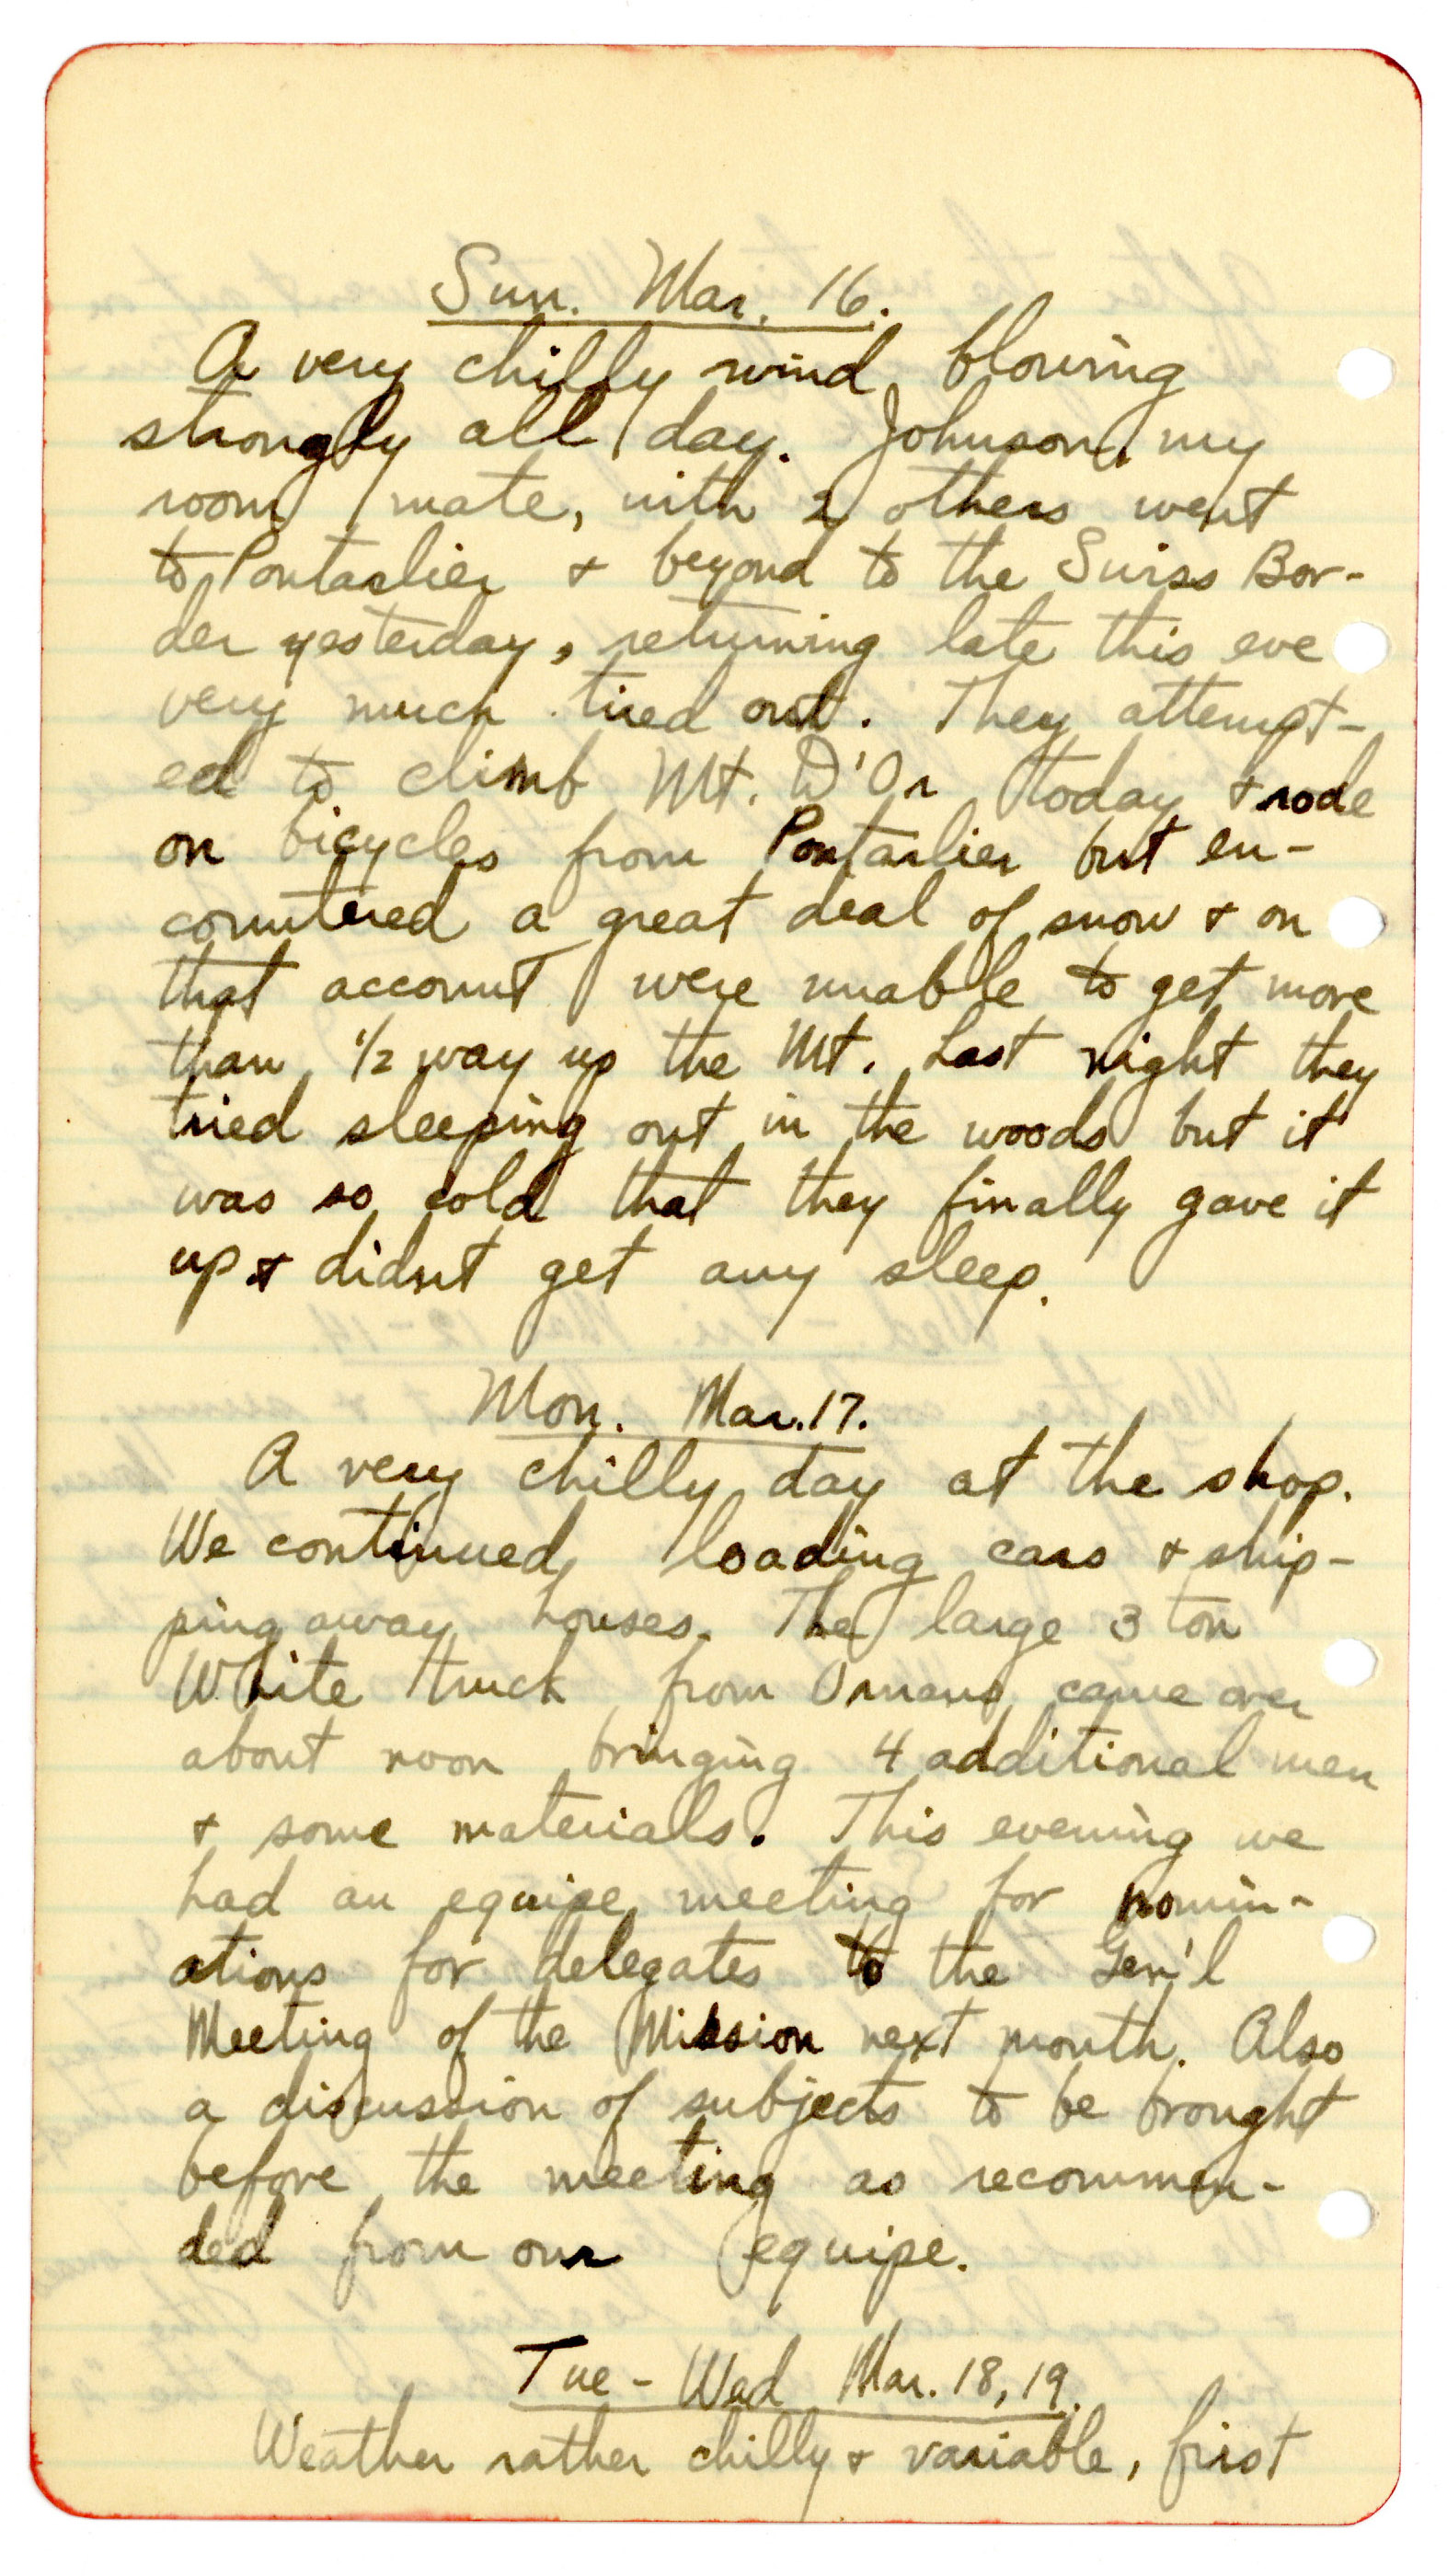 Sun. Mar. 16.
A very chilly wind blowing
strongly all day. Johnson, my
room mate, with 2 others went
to Pontarlier & beyond to the Swiss Bor-
der yesterday, returning late this eve
very much tired out. They attempt-
ed to climb Mt. D'Or today & rode
on bicycles from Pontarlier but en-
countered a great deal of snow & on
that account were unable to get more
than 1/2 way up the Mt. Last night they
tried sleeping out in the woods but it
was so cold that they finally gave it
up & didn't get any sleep.
Mon. Mar. 17.
A very chilly day at the shop.
We continued loading cars & ship-
ping away houses. The large 3 ton
White truck from Ornans came over
about noon bringing 4 additional men
& some materials. This evening we
had an equipe meeting for nomin-
ations for delegates to the Gen'l
Meeting of the Mission next month. Also
a discussion of subjects to be brought
before the meeting as recommen-
ded from our equipe.
Tue - Wed Mar. 18, 19.
Weather rather chilly & variable, first